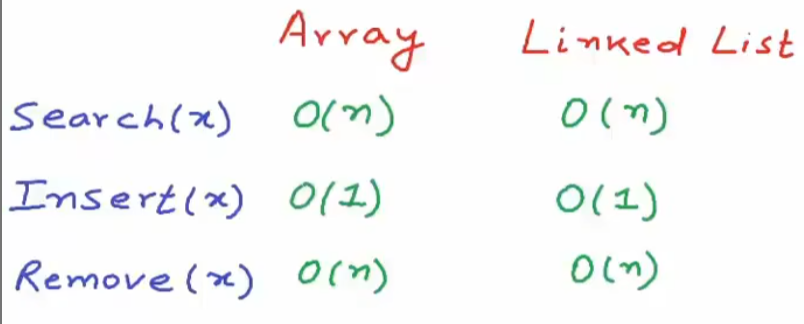 Array Linked List
Search(x) O(n) O(n)
Insert(x) O(1) O(1)
Remove(x) O(n) O(n)